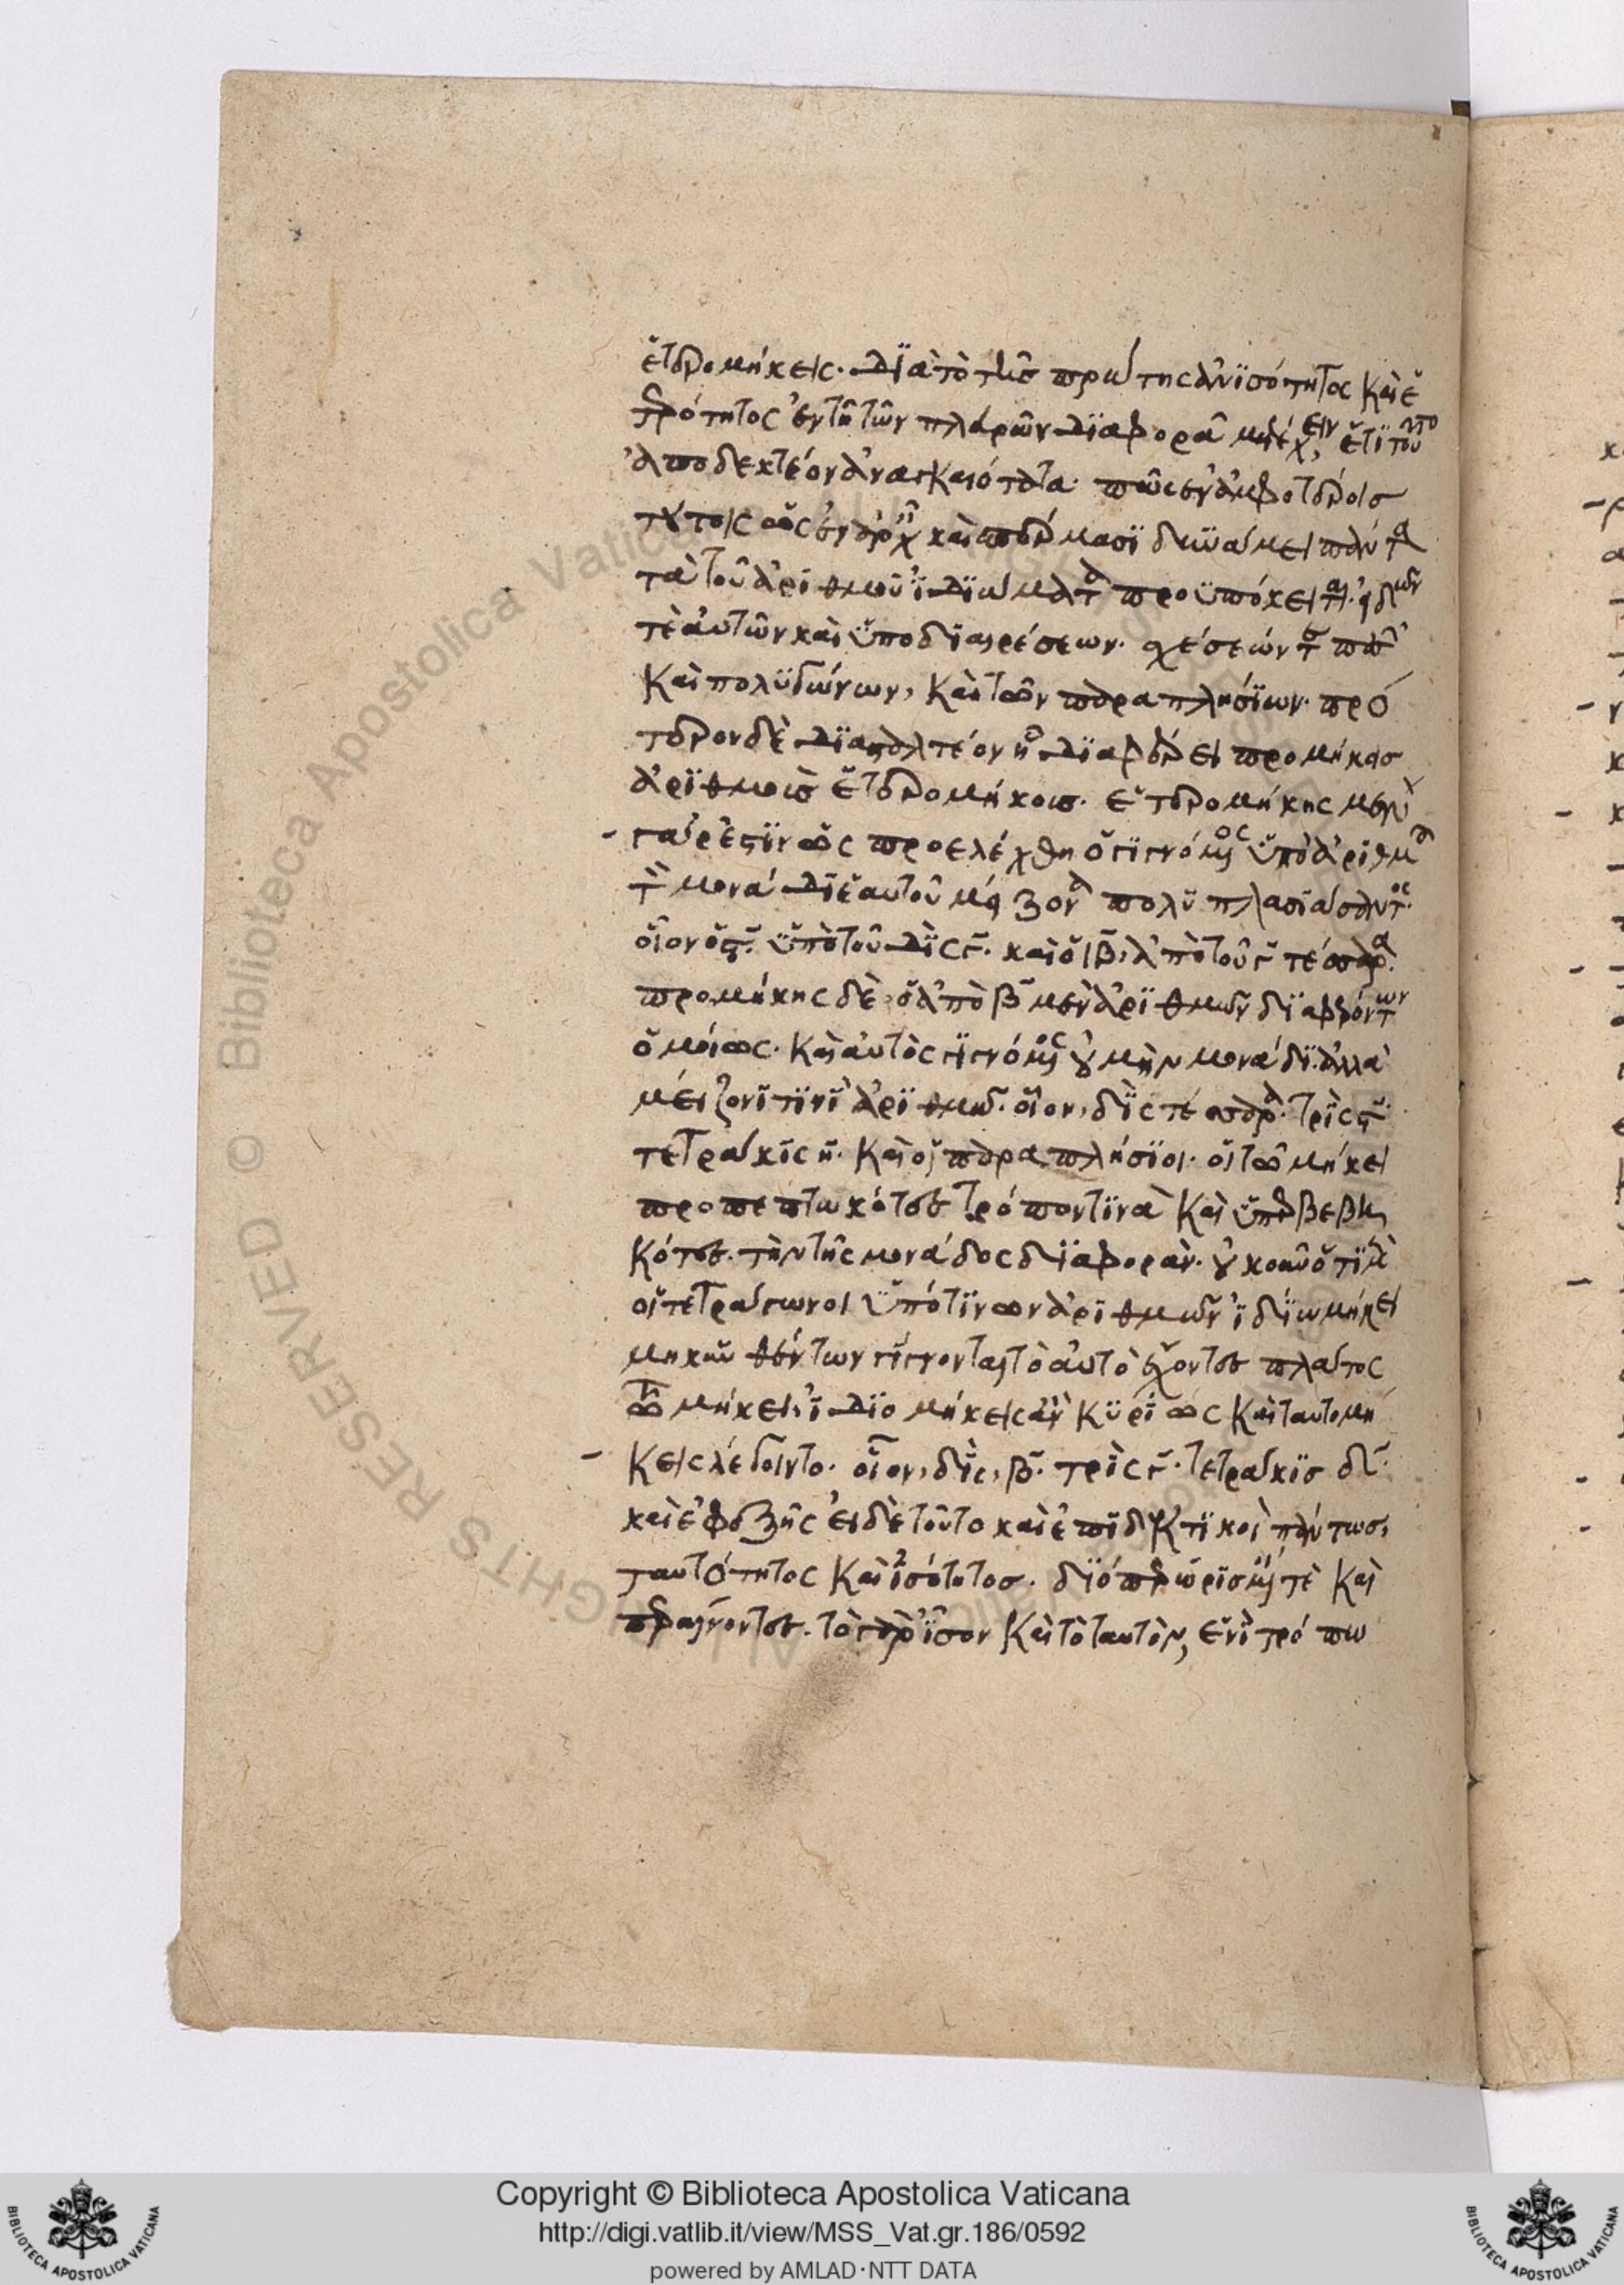 ἑτερομήκεις· διὰ τὸ τῆς πρώτης ἀνισότητος καὶ ἑ
τερότητος ἐν τῇ τῶν πλευρῶν διαφορᾷ μετέχειν, ἔτι τοῦτο
ἀποδεκτέον ἀναγκαιότατα· πῶς ἐν ἀμφοτέροις
τούτοις ὡς ἐν ἀρχῇ καὶ σπέρμασι δυνάμει πάντα
τὰ τοῦ ἀριθμοῦ ἰδιώματα προϋπόκειται· εἰδῶν
τὲ αὐτῶν καὶ ὑποδιαιρέσεων· σχέσεών τε πασῶν
καὶ πολυγώνων, καὶ τῶν παραπλησίων· πρό
τερον δὲ διασταλτέον ᾗ διαφέρει προμήκης
ἀριθμὸς ἑτερομήκους· ἑτερομήκης μὲν
γάρ ἐστιν ὡς προελέχθη ὁ γιγνόμενος ὑπὸ ἀριθμοῦ
μονάδι ἑαυτοῦ μείζονα πολυπλασιάσαντος·
οἷον ὁ ϛ̄· ὑπὸ τοῦ δὶς γ̄· καὶ ὁ ιβ̄, ἀπὸ τοῦ γ̄ τέσσαρα·
προμήκης δὲ, ὁ ἀπὸ β̄ μὲν ἀριθμῶν διαφερόντων
ὁμοίως· καὶ αὐτὸς γιγνόμενος οὐ μὴν μονάδι· ἀλλὰ
μείζονί τινι ἀριθμῷ· οἷον, δὶς τέσσαρα· τρὶς ϛ̄·
τετράκις η̄· καὶ οἱ παραπλήσιοι· οἱ τῷ μήκει
προπεπτωκότες τρόπον τινὰ καὶ ὑπερβεβη
κότες· τὴν τῆς μονάδος διαφοράν· οὐκοῦν ὅτι μὲν
οἱ τετράγωνοι ὑπό τινων ἀριθμῶν ἰδίῳ μήκει
μηκυνθέντων γίγνονται τὸ αὐτὸ ἔχοντες πλάτος
τῷ μήκει, ἰδιομήκεις ἂν κυρίως καὶ ταυτομή
κεις λέγοιντο· οἷον, δὶς, β̄· τρὶς γ̄· τετράκις δ̄·
καὶ ἐφεξῆς εἰ δὲ τοῦτο καὶ ἐπιδεκτικοὶ πάντως,
ταυτότητος καὶ ἰσότητος· διόπερ ὡρισμένοι τὲ καὶ
περαίνοντες· τὸ γὰρ ἴσον καὶ τὸ ταυτὸν, ἑνὶ τρόπῳ
Copyright © Biblioteca Apostolica Vaticana
http://digi.vatlib.it/view/MSS_Vat.gr.186/0592
powered by AMLAD·NTT DATA